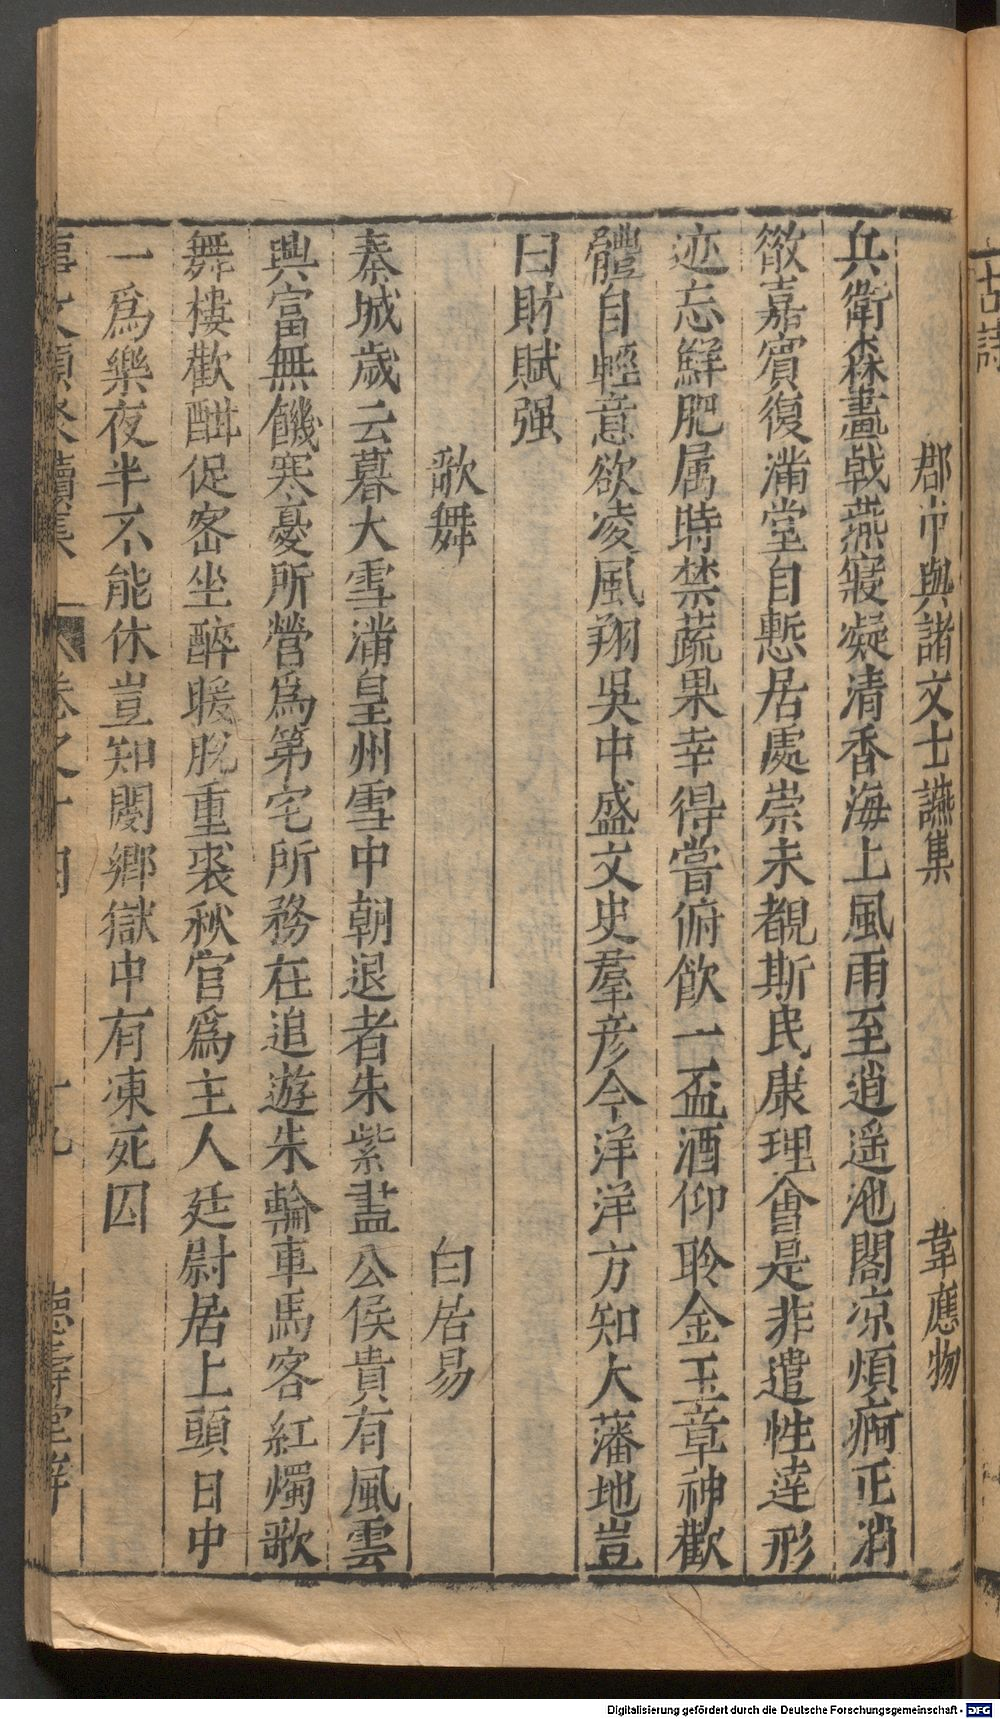 郡中與諸文士讌集 韋應物
兵衛森畫戟燕寢凝清香海上風雨至逍遥池閣凉煩痾正消
散嘉賓復滿堂自慙居處崇未覩斯民康理會是非遣性逹形
迹忘鮮肥属時禁蔬果幸得甞俯飲一盃酒仰聆金玉章神歡
體自輕意欲凌風翔吳中盛文史羣彦今洋洋方知大藩地豈
曰財賦强
歌舞 白居易
秦城歳云暮大雪滿皇州雪中朝退者朱紫盡公侯貴有風雲
興富無饑寒憂所營爲第宅所務在追遊朱輪車馬客紅燭歌
舞樓歡酣促宻坐醉暖脫重裘秋官爲主人廷尉居上頭日中
一爲樂夜半不能休豈知閿鄉獄中有凍死囚
事文類聚續集 卷之十四 十九 德壽堂梓
Digitalisierung gefördert durch die Deutsche Forschungsgemeinschaft - DFG